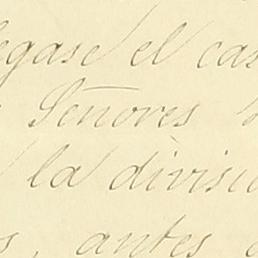 egase el cas
Señores
la divisi
s, antes